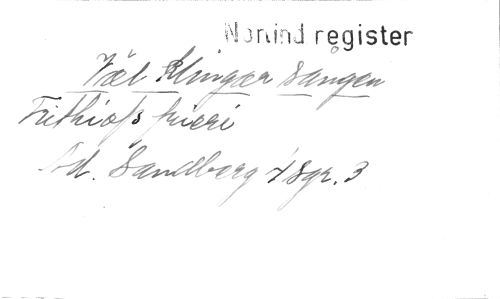 Nonind register
Väl klingar sången
Frithiofs frieri
Ad. Sandberg 4 sgr. 3